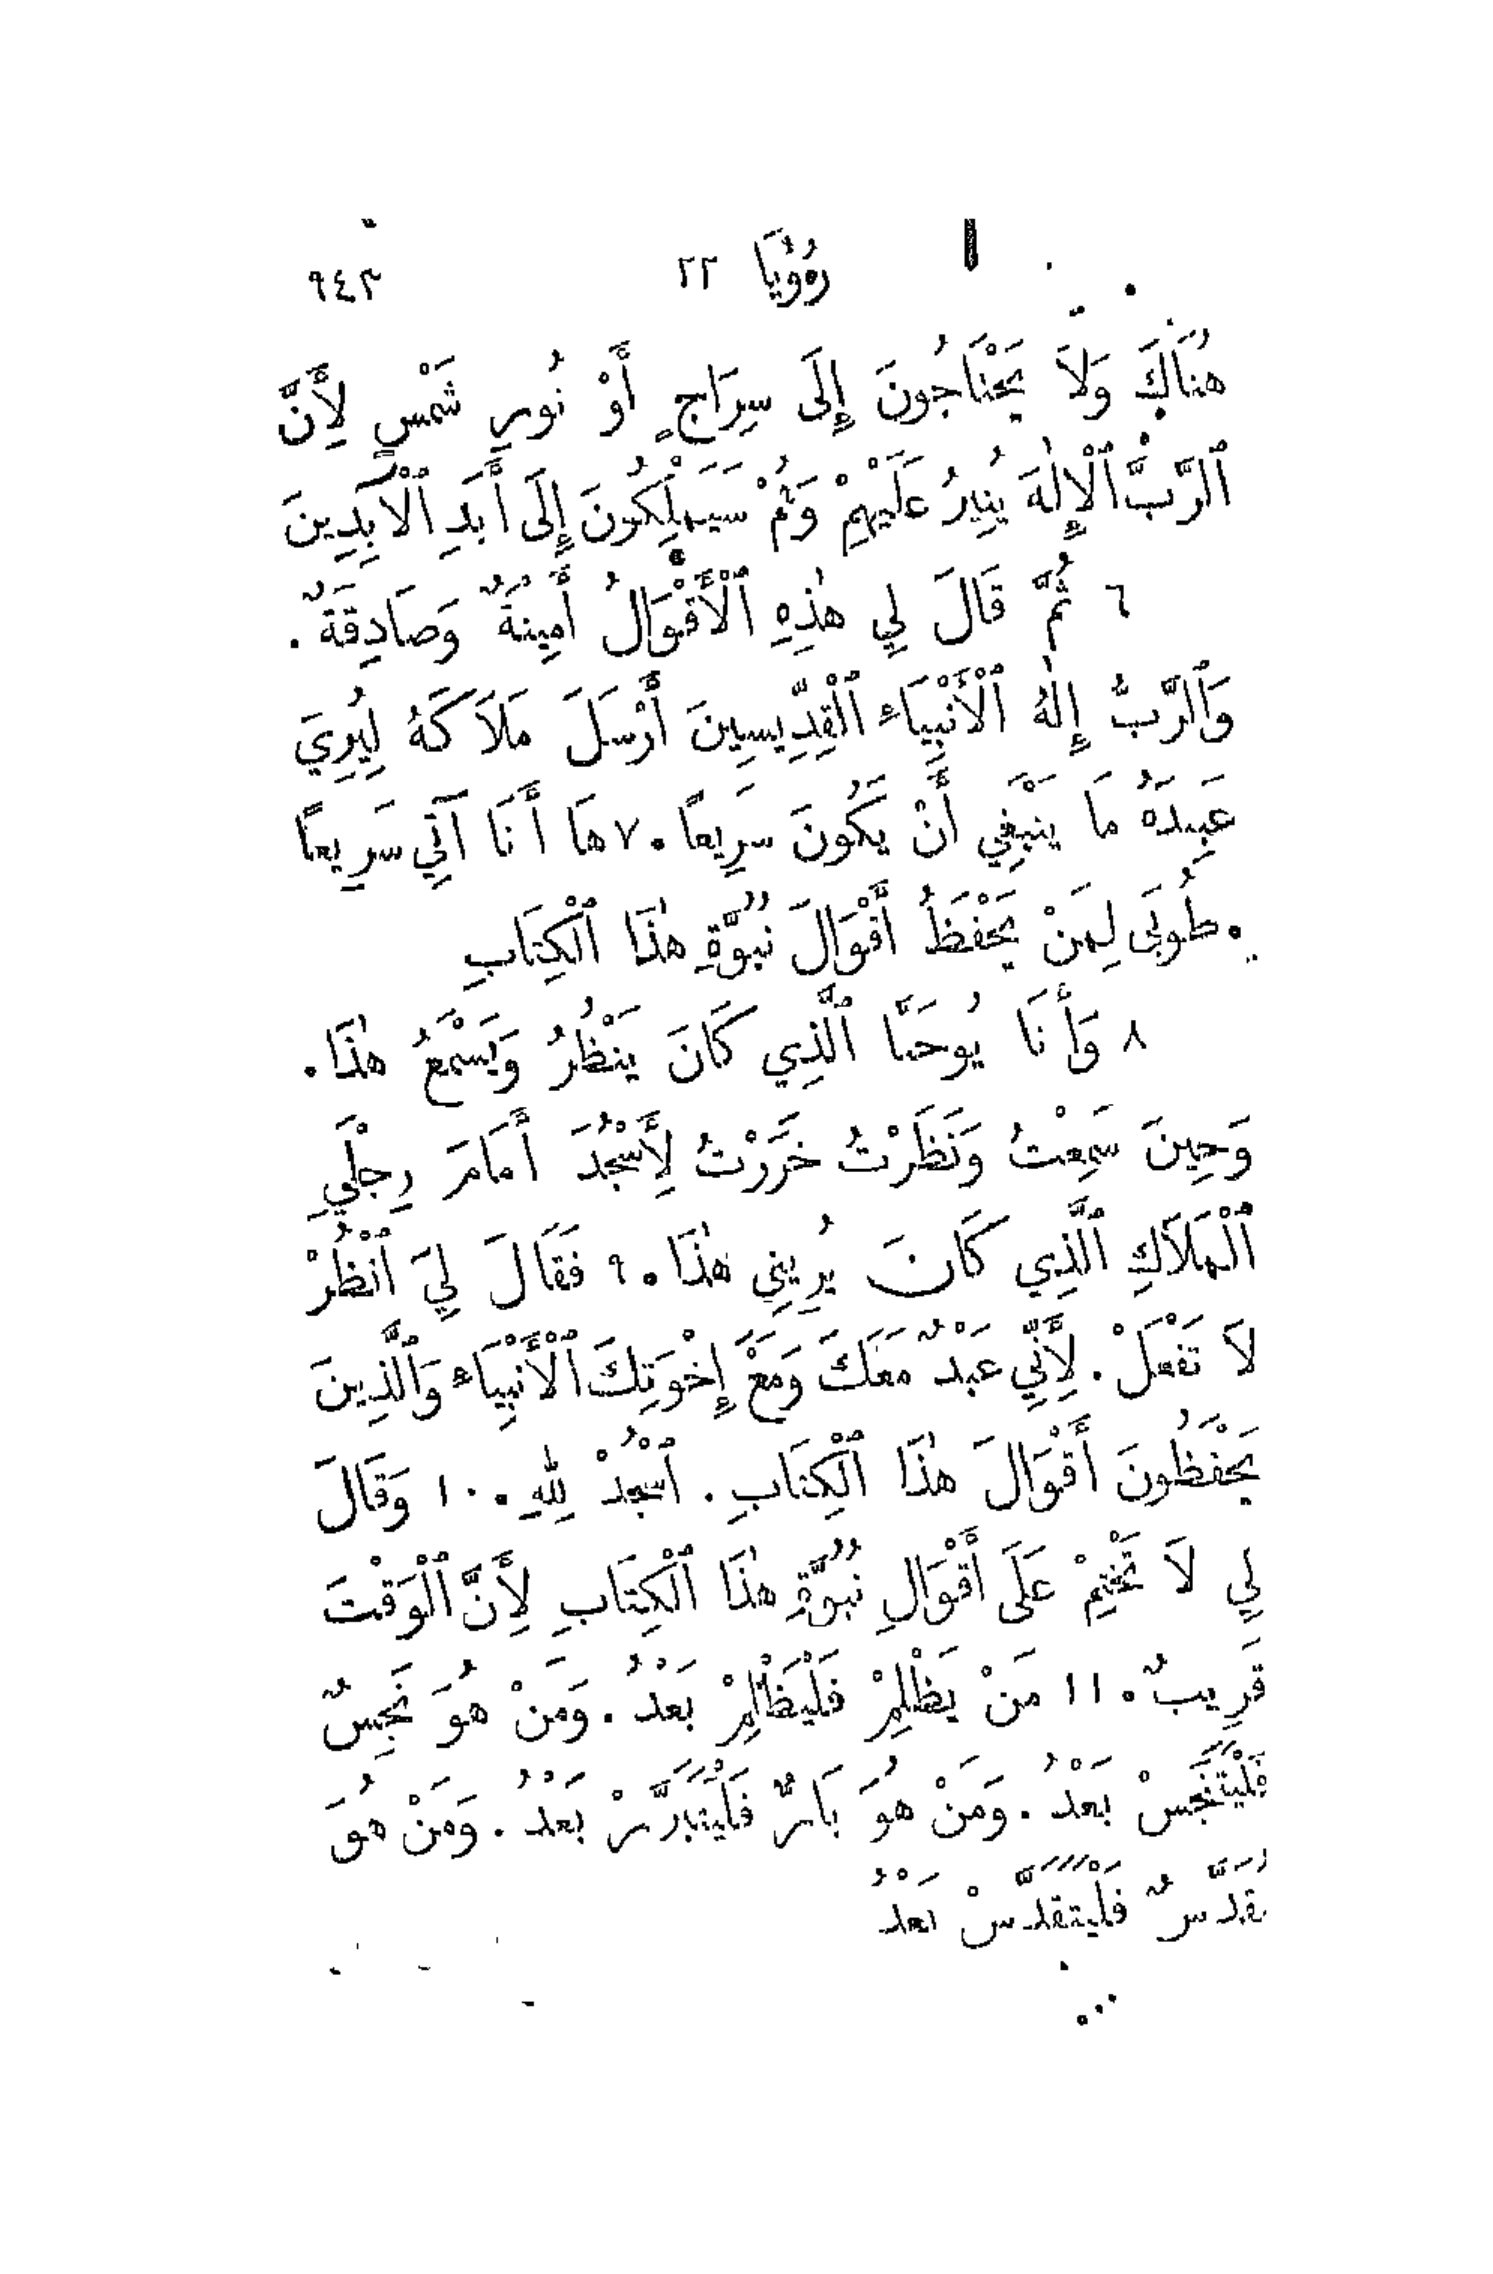 رُؤْيَا ٢٢ ٩٤٣
هُنَاكَ وَلاَ يَحْتَاجُونَ إِلَى سِرَاجٍ أَوْ نُورِ شَمْسٍ لِأَنَّ
ٱلرَّبَّ ٱلْإِلٰهَ يُنِيرُ عَلَيْهِمْ وَهُمْ سَيَمْلِكُونَ إِلَى أَبَدِ ٱلْآبِدِينَ
٦ ثُمَّ قَالَ لِي هٰذِهِ ٱلْأَقْوَالُ أَمِينَةٌ وَصَادِقَةٌ.
وَٱلرَّبُّ إِلٰهُ ٱلْأَنْبِيَاءِ ٱلْقِدِّيسِينَ أَرْسَلَ مَلاَكَهُ لِيُرِيَ
عَبِيدَهُ مَا يَنْبَغِي أَنْ يَكُونَ سَرِيعًا. ٧ هَا أَنَا آتِي سَرِيعًا
. طُوبَى لِمَنْ يَحْفَظُ أَقْوَالَ نُبُوَّةِ هٰذَا ٱلْكِتَابِ
٨ وَأَنَا يُوحَنَّا ٱلَّذِي كَانَ يَنْظُرُ وَيَسْمَعُ هٰذَا.
وَحِينَ سَمِعْتُ وَنَظَرْتُ خَرَرْتُ لِأَسْجُدَ أَمَامَ رِجْلَيِ
ٱلْمَلاَكِ ٱلَّذِي كَانَ يُرِينِي هٰذَا. ٩ فَقَالَ لِيَ ٱنْظُرْ
لاَ تَفْعَلْ. لِأَنِّي عَبْدٌ مَعَكَ وَمَعَ إِخْوَتِكَ ٱلْأَنْبِيَاءِ وَٱلَّذِينَ
يَحْفَظُونَ أَقْوَالَ هٰذَا ٱلْكِتَابِ. ٱسْجُدْ لِلّٰهِ. ١٠ وَقَالَ
لِي لاَ تَخْتِمْ عَلَى أَقْوَالِ نُبُوَّةِ هٰذَا ٱلْكِتَابِ لِأَنَّ ٱلْوَقْتَ
قَرِيبٌ. ١١ مَنْ يَظْلِمْ فَلْيَظْلِمْ بَعْدُ. وَمَنْ هُوَ نَجِسٌ
فَلْيَتَنَجَّسْ بَعْدُ. وَمَنْ هُوَ بَارٌّ فَلْيَتَبَرَّرْ بَعْدُ. وَمَنْ هُوَ
مُقَدَّسٌ فَلْيَتَقَدَّسْ بَعْدُ